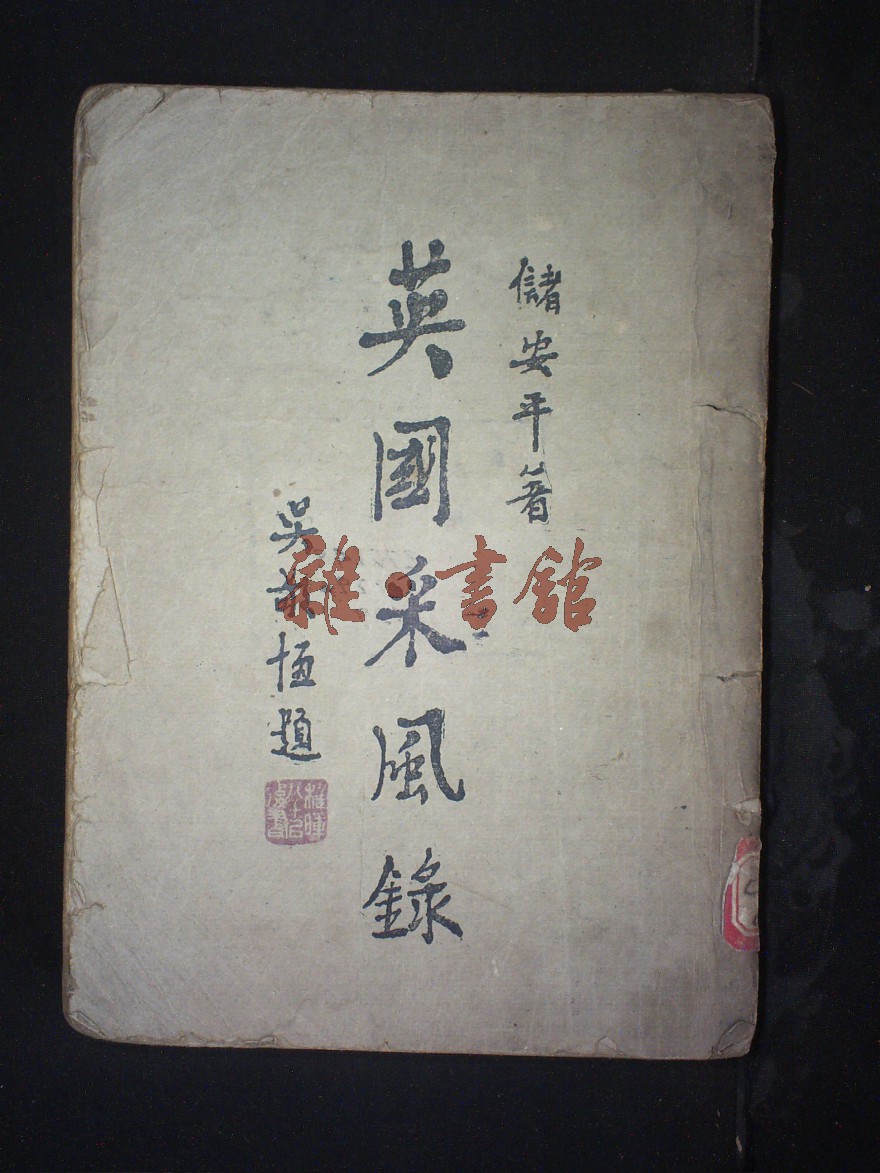 儲安平著
英國采風錄
吳敬恆題
雜·書館